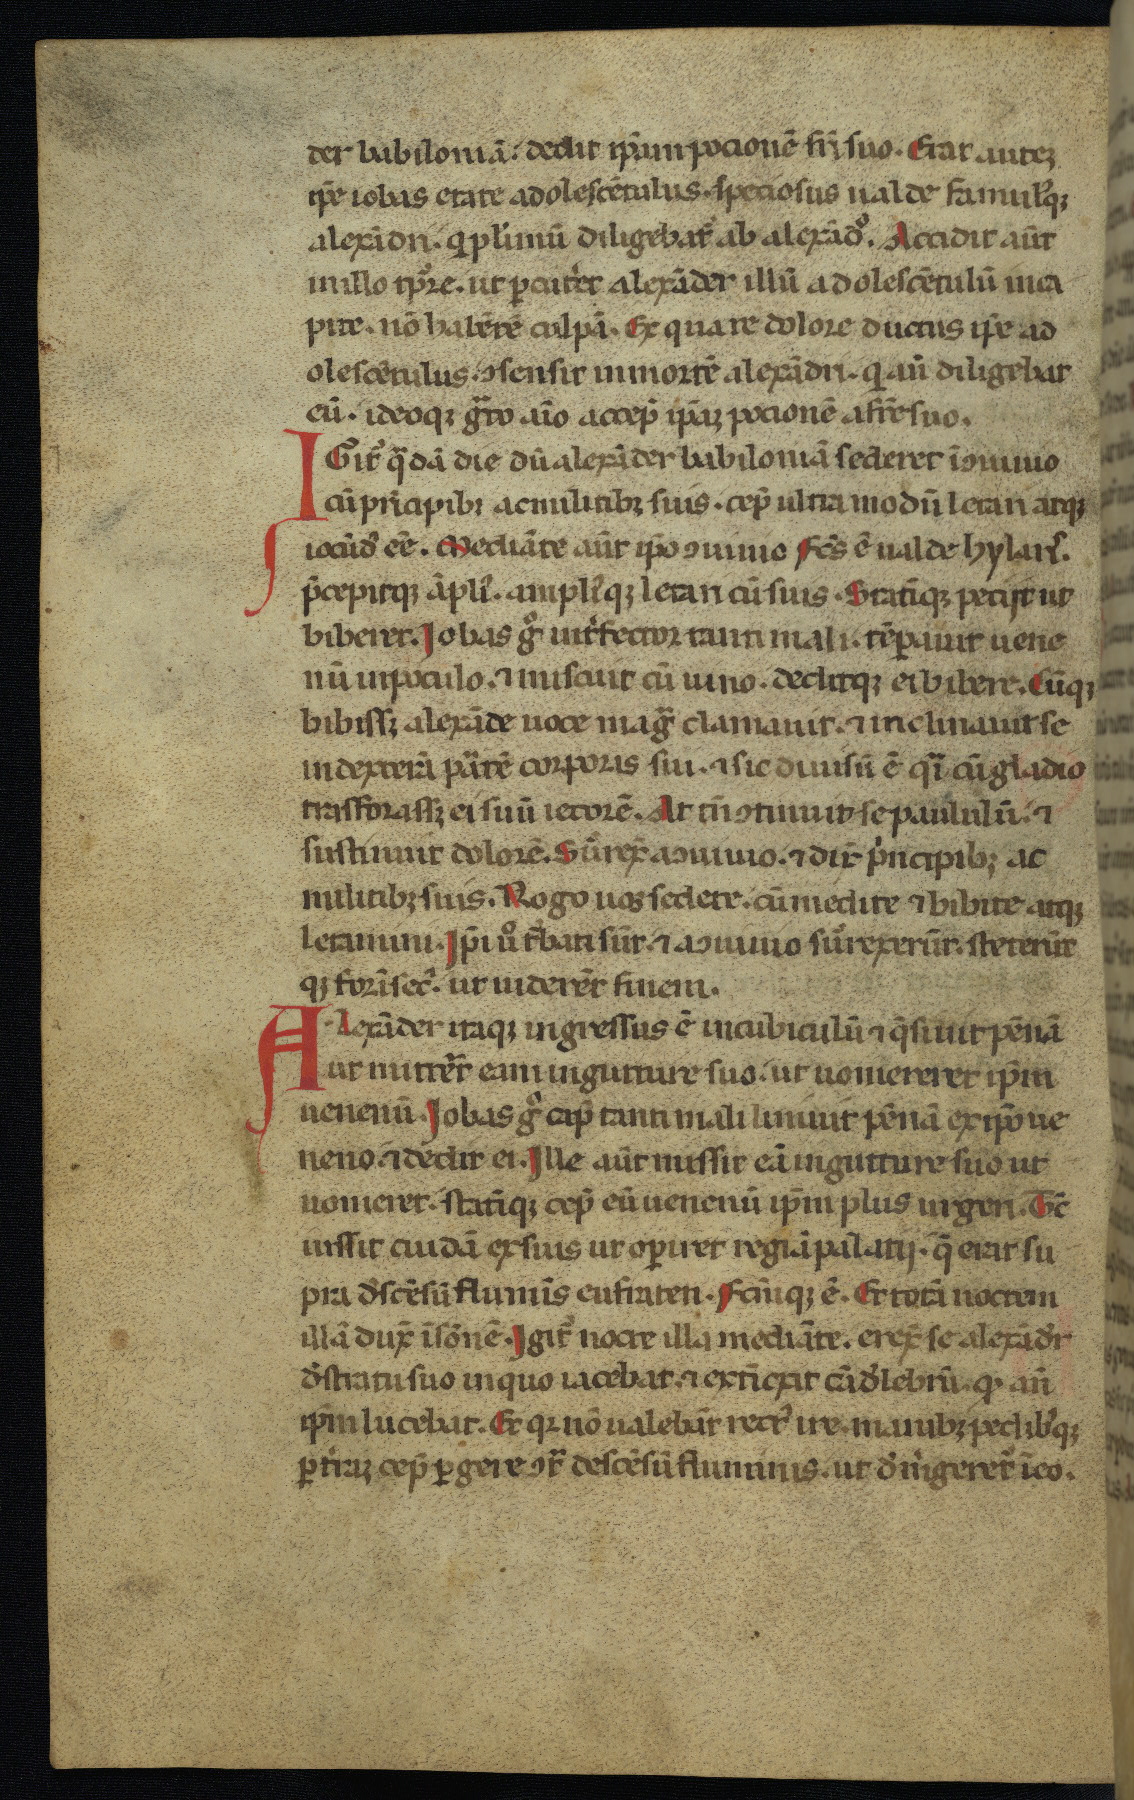 der babiloniā. dedit ip̄am pocionē fr̄i suo. Erat autez
ip̄e iobas etate adolescētulus. speciosus ualde famul᷒qꝫ
alexādri. q̄ plrimū diligebat᷒ ab alexādº. Accidit aūt
in illo tp̄re. ut ꝑcut̓et alexāder illū adolescētulū in ca
pite. nō habētē culpā. Ex qua re dolore ductus ip̄e ad
olescētulus. ꝯsensit in mortē alexādri. q̄ aū diligebat
eū. ideoqꝫ gͣto aīo accep̄ ip̄aꝫ pocionē a fr̄e suo.
IGit᷒ qͣdā die dū alexāder babiloniā sederet ī ꝯuiuio
cū pͥncipibꝫ ac militibꝫ suis. cep̄ ultra modū letari atqꝫ
iocūdꝰ eē. Mediāte aūt ip̄o ꝯuiuio fc̄s ē ualde hylarꝰ.
p̄cepitqꝫ āplꝰ. amplꝰqꝫ letari cū suis. Statīqꝫ petijt ut
biberet. Jobas gº int̓fector tanti mali. tēꝑauit uene
nū in poculo. ⁊ miscuit cū uino. deditqꝫ ei bibere. Cūqꝫ
bibissꝫ alexāde uoce magͣ clamauit. ⁊ inclinauit se
in dexterā pͣrtē corporis sui. ⁊ sic diuisū ē qͣi cū gladio
trāsforassꝫ ei suū iecorē. At tn̄ ꝯtinuit se paululū. ⁊
sustinuit dolorē. Sūrex̄ a ꝯuiuio. ⁊ dix̄ pͥncipibꝫ ac
militibꝫ suis. Rogo uos sedete. cū medite ⁊ bibite atqꝫ
letamini. Jp̄i uº t᷒bati sūt. ⁊ a ꝯuiuio sūrexerūt. steterūt
qꝫ forīsecꝰ. ut uiderēt finem.
Alexāder itaqꝫ ingressus ē in cubiculū ⁊ q̄siuit pēnā
ut mitt̓et eam in gutture suo. ut uomereret ip̄m
uenenū. Jobas gº cap̄ tanti mali liniuit pēnā ex ip̄o ue
neno. ⁊ dedit ei. Jlle aūt missit eā in gutture suo ut
uomeret. statīqꝫ cep̄ eū uenenū ip̄m plus urgeri. Tc̄
iussit cuidā ex suis ut oꝑiret regiā palatij. q̄ erat su
pra dꝰscēsū fluminis eufraten. Fc̄mqꝫ ē. Et totā noctem
illā dux̄ īsōnē. Jgit᷒ nocte illa mediāte. erex̄ se alexādꝰr
dꝰ stratu suo in quo iacebat. ⁊ extīxit cādꝰlebrū. qº aū
ip̄m lucebat. Et qꝛ nō ualebāt rectꝰ ire. manibꝫ pedibꝰqꝫ
ꝑt̓iaꝫ cep̄ ꝑgere ꝯtͣ descēsū fluminis. ut dꝰm̓geret᷒ ī eo.